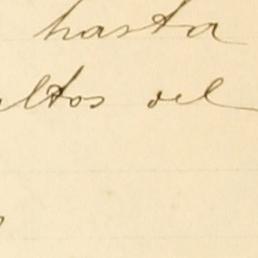 hasta
ltos del